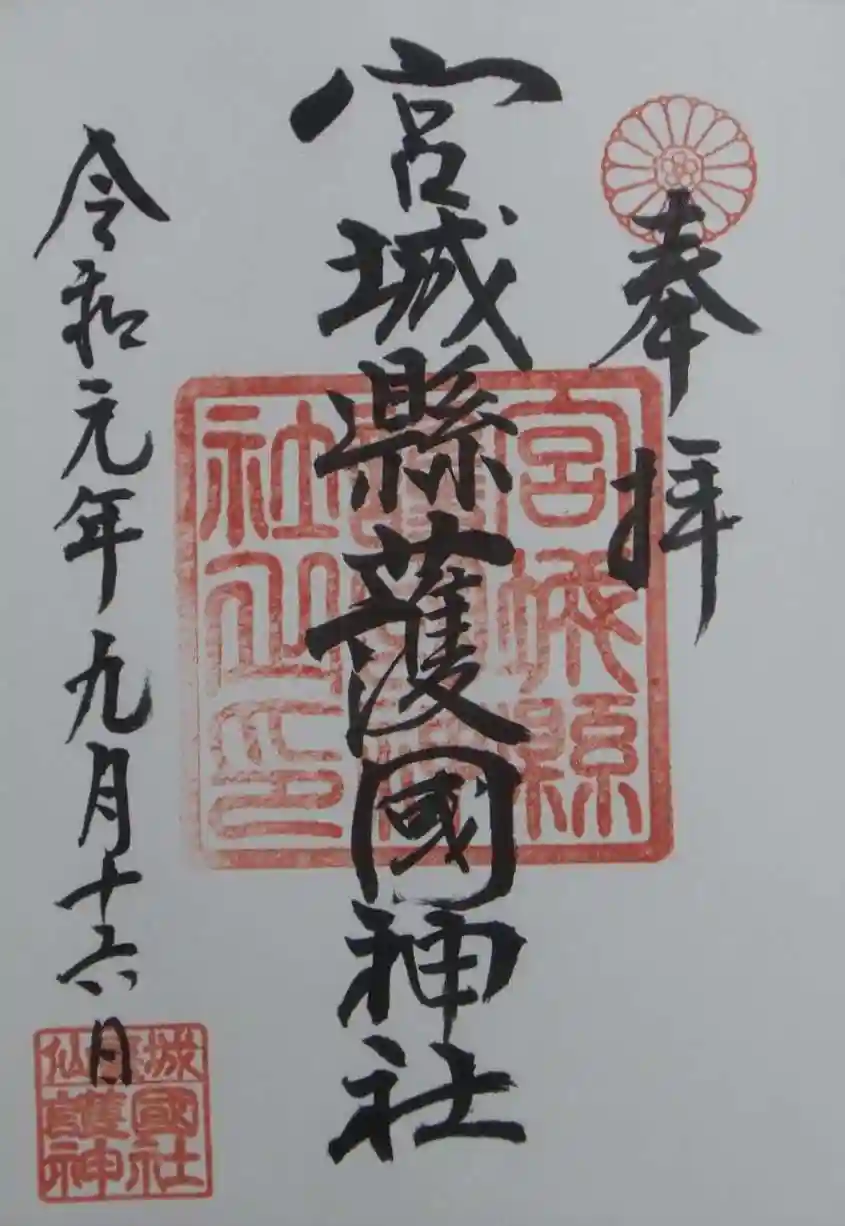 奉拝
宮城縣護國神社
宮城縣護國神社之印
令和元年九月十六日
仙臺城
護國
神社